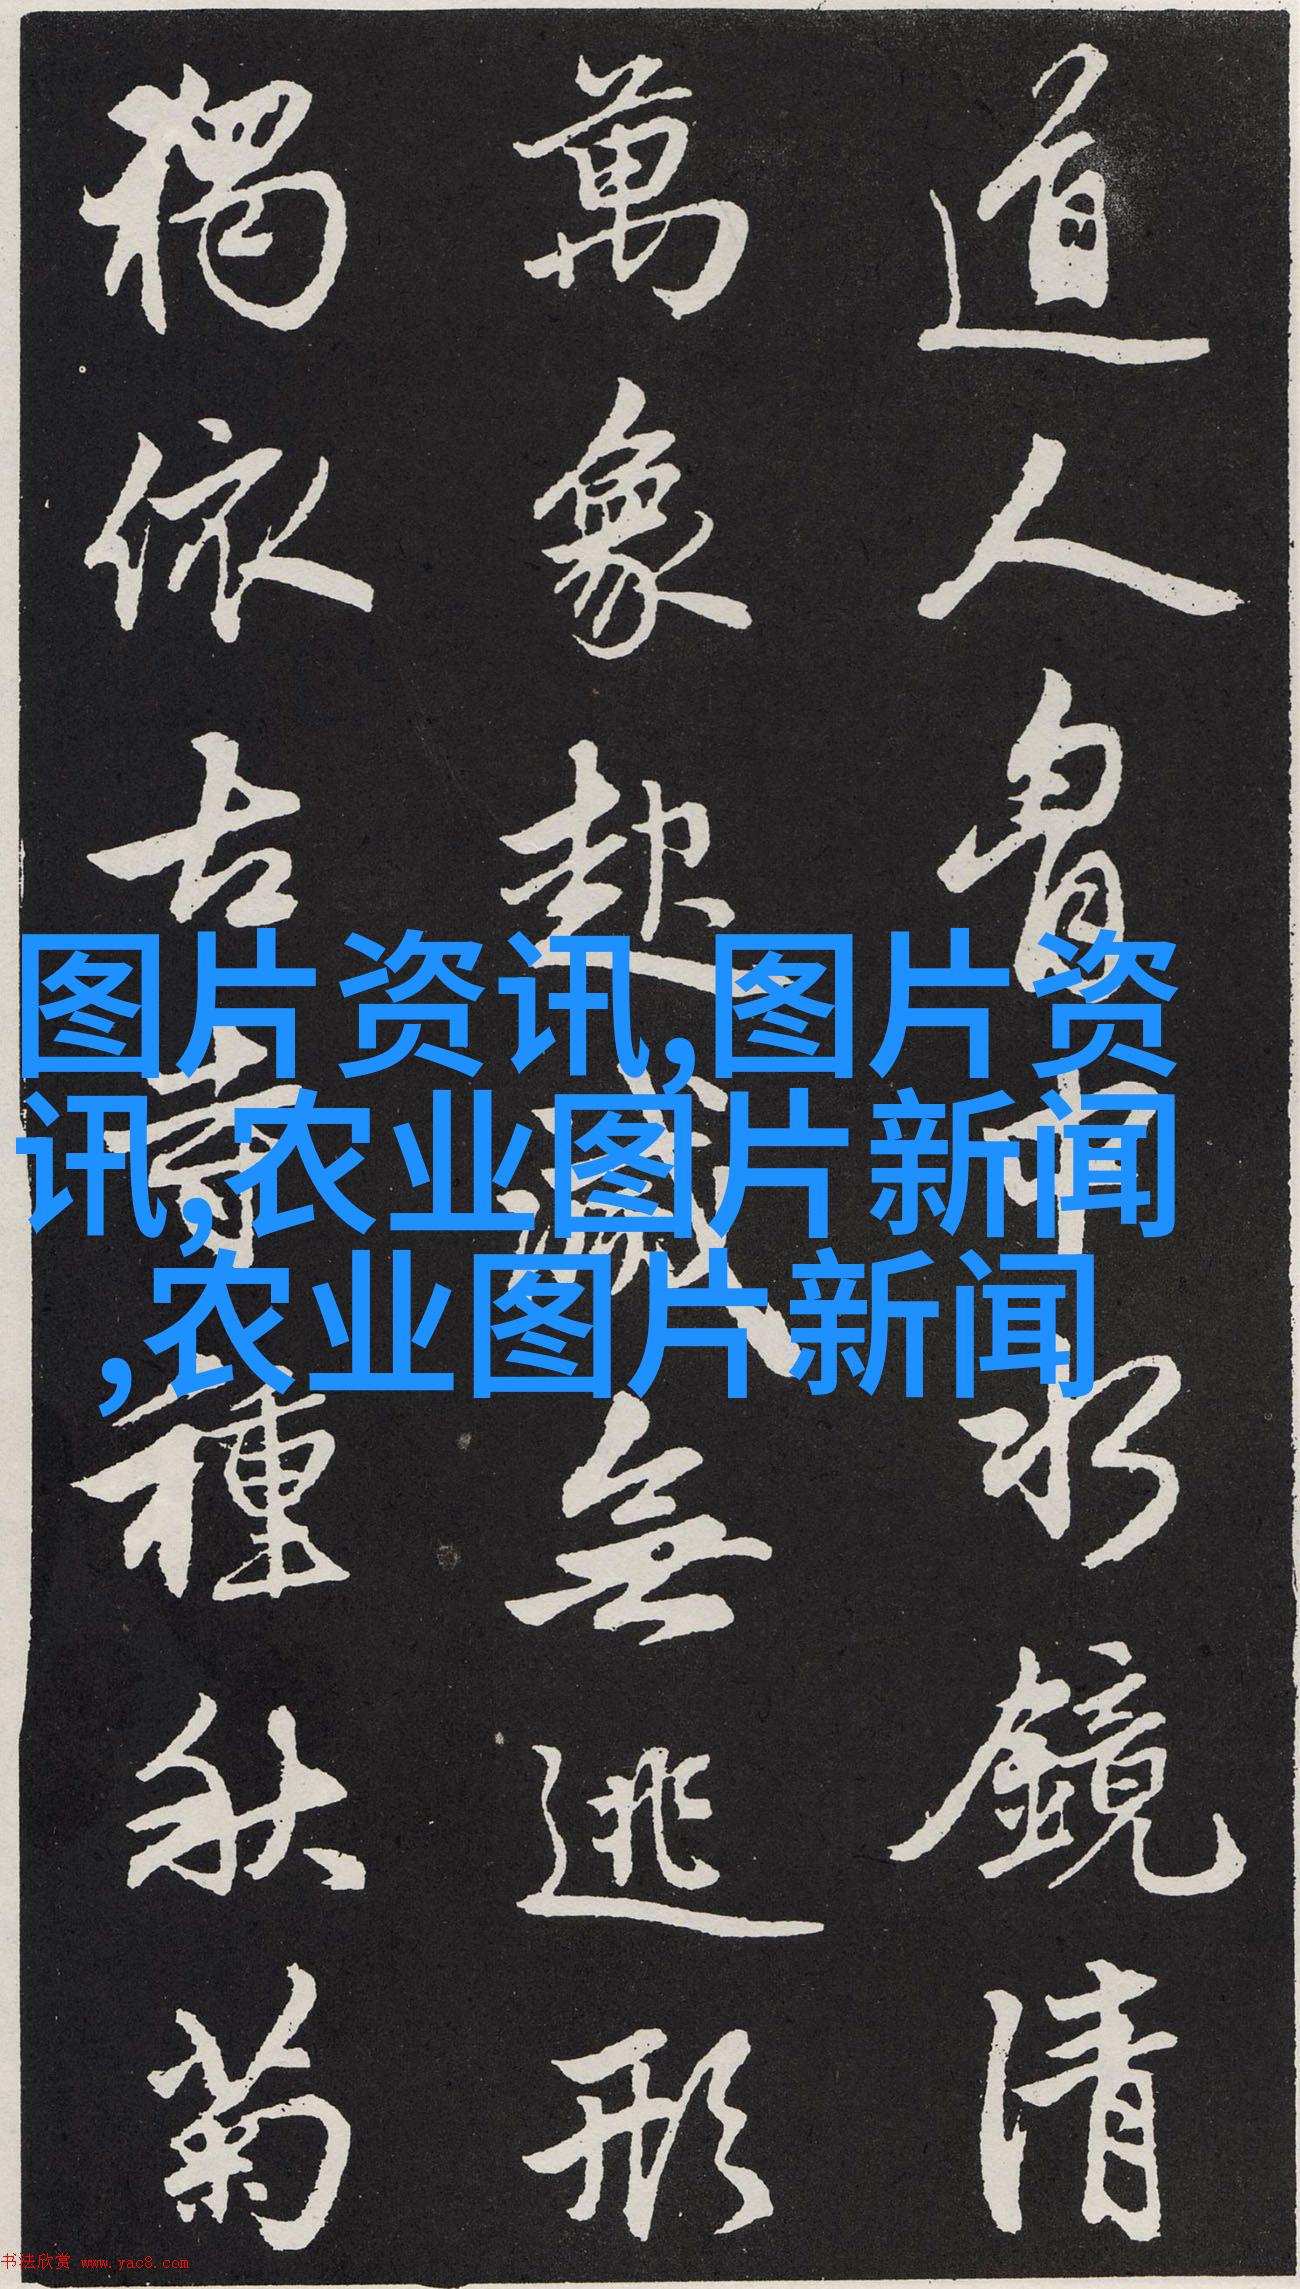 道人胷中水鏡清
萬象起滅無逃形
獨依古寺種秋菊
图片资讯,图片资
讯,农业图片新闻
,农业图片新闻
书法欣赏 www.yac8.com